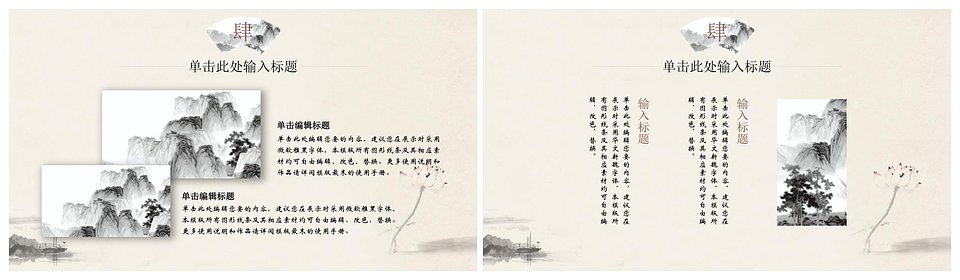 肆
单击此处输入标题
单击编辑标题
单击此处编辑您要的内容，建议您在展示时采用
微软雅黑字体，本模版所有图形线条及其相应素
材均可自由编辑、改色、替换。更多使用说明和
作品请详阅模版最末的使用手册。
单击编辑标题
单击此处编辑您要的内容，建议您在展示时采用微软雅黑字体，
本模版所有图形线条及其相应素材均可自由编辑、改色、替换。
更多使用说明和作品请详阅模版最末的使用手册。
肆
单击此处输入标题
输入标题
单击此处编辑您要的内容，建议您在
展示时采用华文新魏字体，本模版所
有图形线条及其相应素材均可自由编
辑、改色、替换。
输入标题
单击此处编辑您要的内容，建议您在
展示时采用华文新魏字体，本模版所
有图形线条及其相应素材均可自由编
辑、改色、替换。